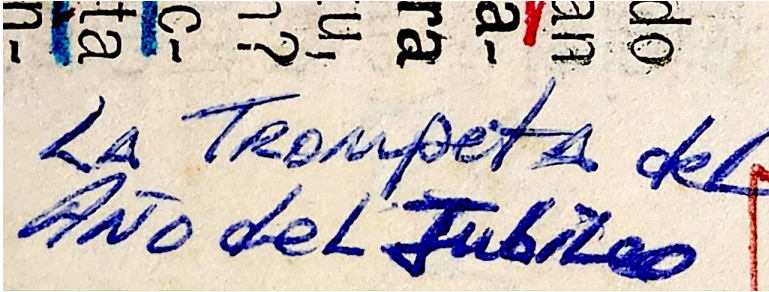 La Trompeta del
Año del Jubileo